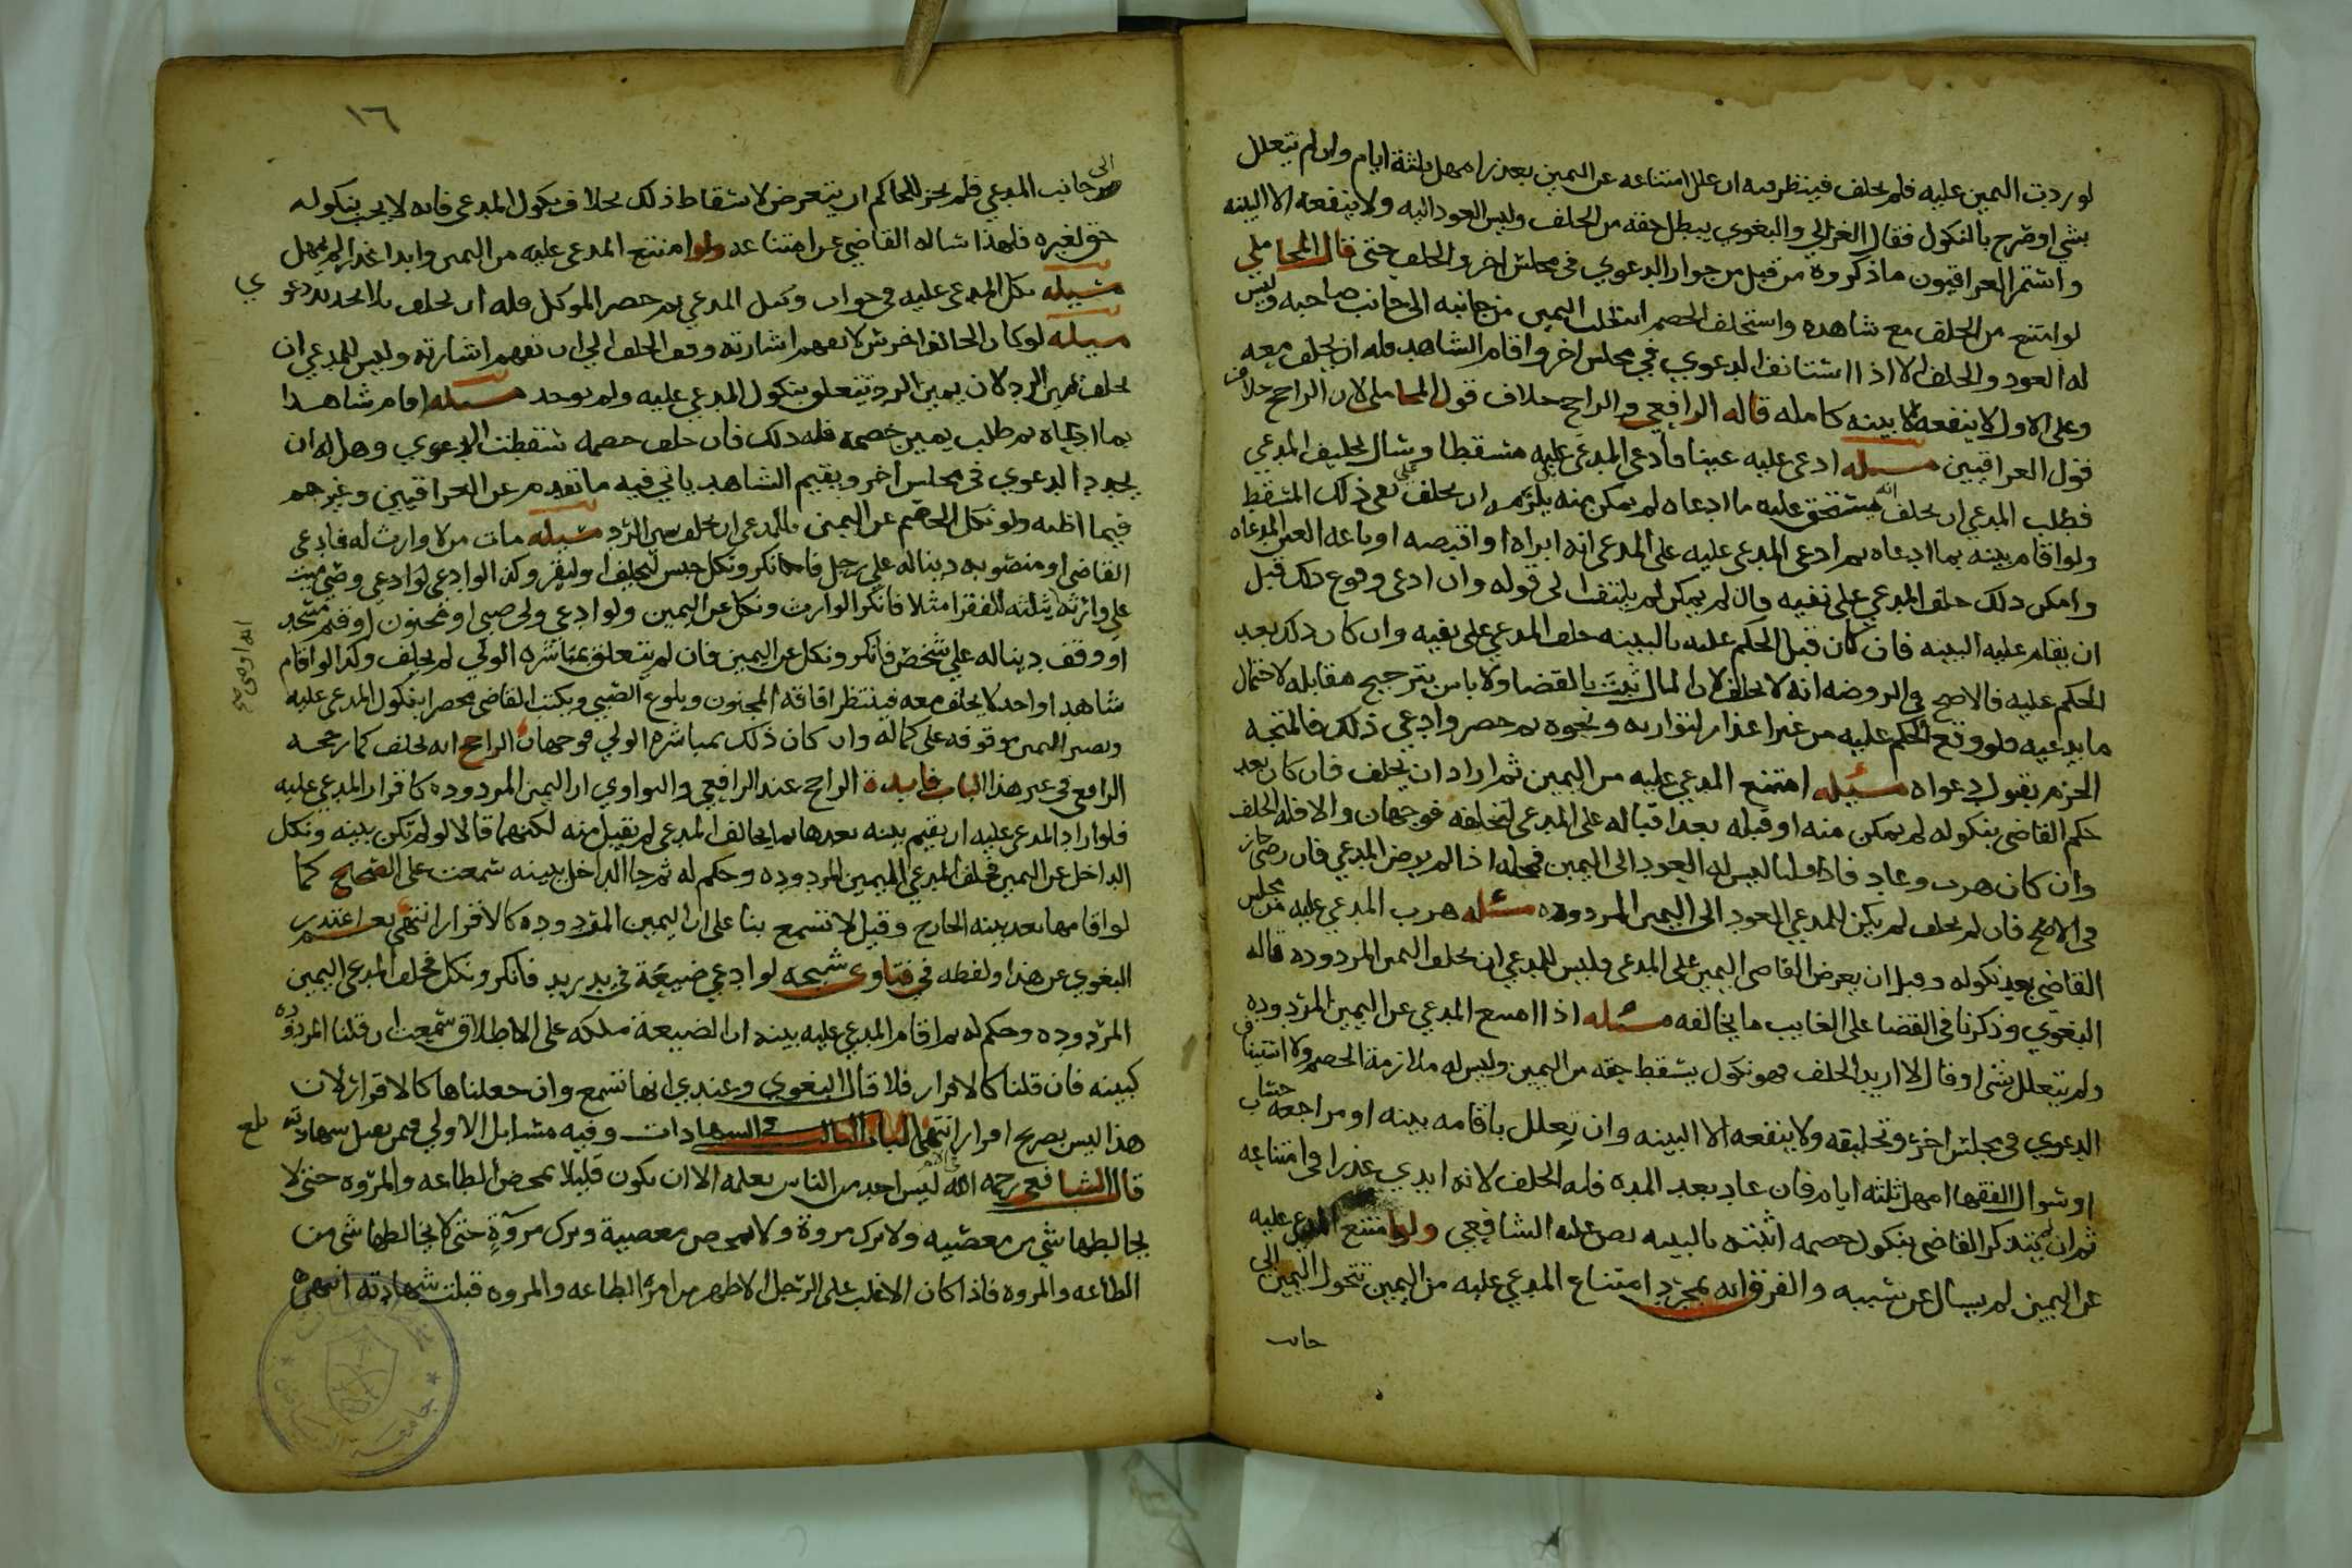 لو ردت اليمين عليه فلم يحلف فينظر فيه ان علل امتناعه عن اليمين بعذر امهل ثلثة ايام وان لم يتعلل
بشي او صرح بالنكول فقال الغزالي والبغوي يبطل حقه من الحلف وليس العود اليه ولا ينفعه الا البينه
واستمر العراقيون ما ذكروه من قبل من جواز الدعوي في مجلس اخر والحلف حتى قال المحاملي
لو امتنع من الحلف مع شاهده واستحلف الخصم انتقلت اليمين من جانبه الى جانب صاحبه وليس
له العود والحلف الا اذا استانف الدعوي في مجلس اخر واقام الشاهد فله ان يحلف معه
وعلى الاول لا ينفعه الا بينه كامله قاله الرافعي والراجح خلاف قول المحاملي لان الراجح خلاف
قول العراقيين مسيله ادعى عليه عينا فادعى المدعى عليه مسقطا وسال تحليف المدعي
فطلب المدعي ان يحلف انه يستحق عليه ما ادعاه لم يمكن منه بل يلزمه ان يحلف على نفي ذلك المسقط
ولو اقام بينه بما ادعاه ثم ادعى المدعى عليه على المدعي انه ابراه او اقبضه او باعه العين المدعاه
وامكن ذلك حلف المدعي على نفيه وان لم يمكن لم يلتفت الى قوله وان ادعى وقوع ذلك قبل
ان يقام عليه البينه فان كان قبل الحكم عليه بالبينه حلف المدعي على نفيه وان كان ذلك بعد
الحكم عليه فالاصح في الروضه انه لا يحلف لان المال ثبت بالقضا ولا باس بترجيح مقابله لاحتمال
ما يدعيه فلو وقع الحكم عليه من غير اعذار لتواريه ونحوه ثم حضر وادعى ذلك فالمتجه
الجزم بقبول دعواه مسيله امتنع المدعي عليه من اليمين ثم اراد ان يحلف فان كان بعد
حكم القاضي بنكوله لم يمكن منه او قبله بعد اقباله على المدعي لتحلفه فوجهان والا فله الحلف
وان كان هرب وعاد فاذا قلنا ليس له العود الى اليمين فمحله اذا لم يرض المدعي فان رضي جاز
في الاصح فان لم يحلف لم يكن للمدعي العود الى اليمين المردوده مسئله هرب المدعي عليه من مجلس
القاضي بعد نكوله وقبل ان يعرض القاضي اليمين على المدعي فليس للمدعي ان يحلف اليمين المردوده قاله
البغوي وذكرنا في القضا على الغايب ما يخالفه مسئله اذا امتنع المدعي عن اليمين المردوده
ولم يتعلل بشي او قال لا اريد الحلف فهو نكول يسقط حقه من اليمين وليس له ملازمة الخصم ولا استيناف
الدعوي في مجلس اخر وتحليفه ولا ينفعه الا البينه وان تعلل باقامه بينه او مراجعه حساب
او سوال الفقها امهل ثلثه ايام فان عاد بعد المده فله الحلف لانه ابدي عذرا في امتناعه
ثم ان لم يتذكر القاضي بنكول خصمه اثبته بالبينه نص عليه الشافعي ولو امتنع المدعى عليه
عن اليمين لم يسال عن سببه والفرق انه بمجرد امتناع المدعي عليه من اليمين تتحول اليمين الى
جانب
١٦
الى
جانب المدعي فلم يجز للحاكم ان يتعرض لاسقاط ذلك بخلاف نكول المدعي فانه لا يجب بنكوله
حق لغيره فلهذا ساله القاضي عن امتناعه ولو امتنع المدعى عليه من اليمين وابدا عذرا لم يمهل
مسيله نكل المدعى عليه في جواب وكيل المدعي ثم حضر الموكل فله ان يحلف بلا تجديد دعوي
مسيله لو كان الحالف اخرس لا تفهم اشارته وقف الحلف الى ان تفهم اشارته وليس للمدعي ان
يحلف يمين الرد لان يمين الرد تتعلق بنكول المدعى عليه ولم يوجد مسيله اقام شاهدا
بما ادعاه ثم طلب يمين خصمه فله ذلك فان حلف خصمه سقطت الدعوي وهل له ان
يجدد الدعوي في مجلس اخر ويقيم الشاهد ياتي فيه ما تقدم عن العراقيين وغيرهم
فيما اظنه ولو نكل الخصم عن اليمين فللمدعي ان يحلف يمين الرد مسيله مات من لا وارث له فادعى
القاضي او منصوبه دينا له على رجل فانكر ونكل حبس ليحلف او ليقر وكذا لو ادعى وصي ميت
على وارثه بثلثه للفقرا مثلا فانكر الوارث ونكل عن اليمين ولو ادعى ولي صبي او مجنون او قيم مسجد
او وقف دينا له علي شخص فانكر ونكل عن اليمين فان لم يتعلق بمباشره الولي لم يحلف وكذا لو اقام
شاهدا واحدا لا يحلف معه فينتظر افاقة المجنون وبلوغ الصبي ويكتب القاضي محضرا بنكول المدعى عليه
وتصير اليمين موقوفه على كماله وان كان ذلك بمباشره الولي فوجهان الراجح انه يحلف كما رجحه
الرافعي في غير هذا الباب فايدة الراجح عند الرافعي والنواوي ان اليمين المردوده كاقرار المدعى عليه
فلو اراد المدعى عليه ان يقيم بينه بعدها بما يخالف المدعي لم يقبل منه لكنهما قالا لو لم تكن بينه ونكل
الداخل عن اليمين فحلف المدعي اليمين المردوده وحكم له ثم جا الداخل ببينه سمعت على الصحيح كما
لو اقامها بعد بينه الخارج وقيل لا تسمع بنا على ان اليمين المردوده كالاقرار انتهى بعد اعتذر
البغوي عن هذا ولفظه في فتاوى شيخه لو ادعى ضيعة في يد زيد فانكر ونكل فحلف المدعي اليمين
المردوده وحكم له ثم اقام المدعى عليه بينه ان الضيعة ملكه على الاطلاق سمعت ان قلنا المردوده
كبينه فان قلنا كالاقرار فلا قال البغوي وعندي انها تسمع وان جعلناها كالاقرار لان
هذا ليس بصريح اقرار انتهى الباب الثالث في الشهادات وفيه مسايل الاولى فيمن تقبل شهادته
قال الشافعي رحمه الله ليس احد من الناس نعلمه الا ان يكون قليلا يمحض الطاعه والمروه حتى لا
يخالطهما شي من معصيه ولا ترك مروة ولا يمحض معصية وترك مروة حتى لا يخالطهما شي من
الطاعه والمروه فاذا كان الاغلب على الرجل الاظهر من امره الطاعه والمروه قبلت شهادته انتهى
بلغ